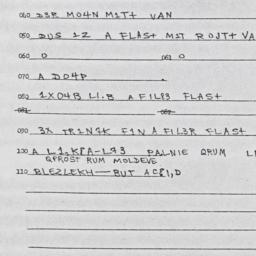 060 D3R MO4N M1T+ VAN
050 DUS 1Z A FLAST M1T ROJT+ VA
060 O 061 O
070 A DO4P
082 1XO4B L1.B A F1L83 FLAST
090 3X TR1N1K F1N A F1L3R FLAST
100 A L1.KPA-L93 PALNIE QRUM L
QFROST RUM MOLDEVE
110 BLEZLEKH—BUT AC81,D